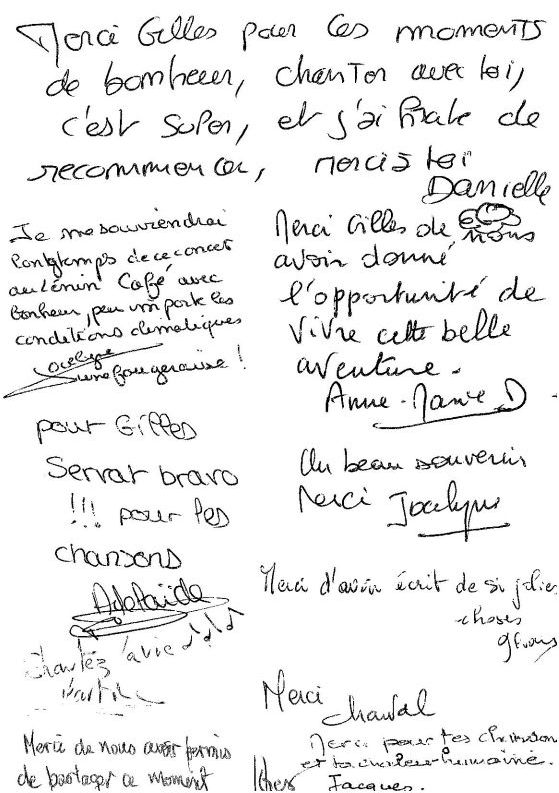 Merci Gilles pour ces moments
de bonheur, chanter avec toi,
c'est super, et j'ai hâte de
recommencer, merci à toi
Danielle
Je me souviendrai
longtemps de ce concert
au Lénin Café avec
bonheur, peu importe les
conditions climatiques
Jocelyne
une fougeraise !
Merci Gilles de nous
avoir donné
l'opportunité de
vivre cette belle
aventure.
Anne-Marie D
pour Gilles
Servat bravo
!!! pour tes
chansons
Adélaïde
Un beau souvenir
Merci Jocelyne
Merci d'avoir écrit de si jolies
choses
Chantez
Merci
Chantal
Merci de nous avoir permis
de partager ce moment
Merci pour tes chansons
et ta chaleur humaine.
Jacques.